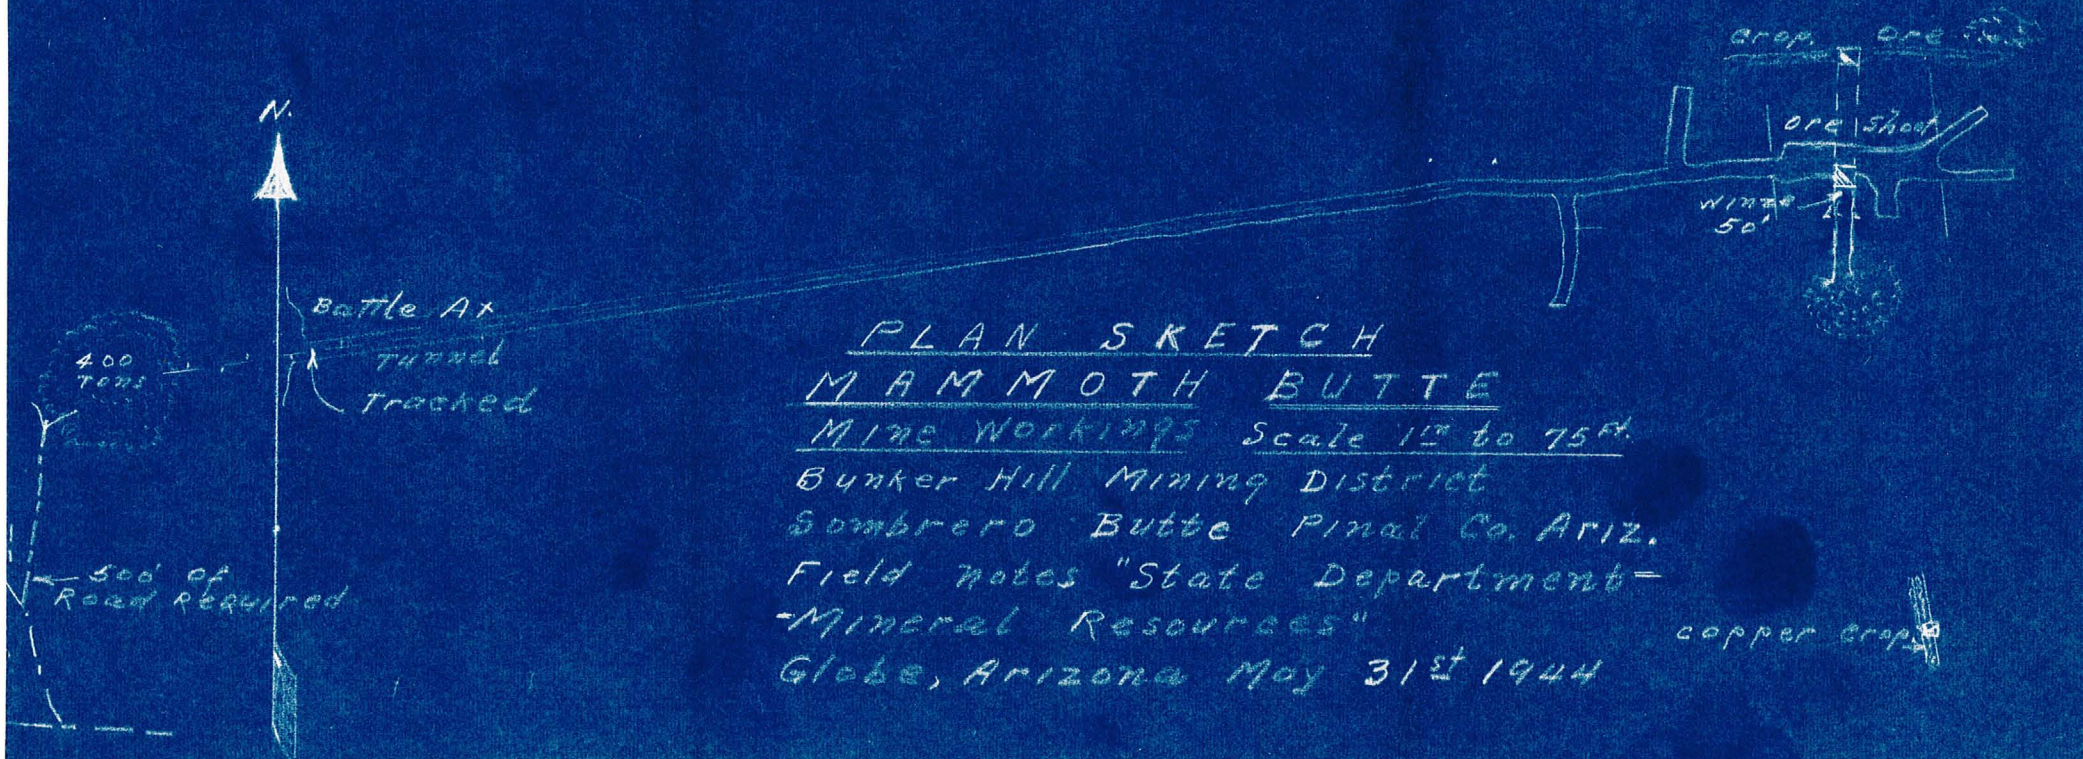 crop. ore
N.
ore shoot
winze
50'
Battle Ax
Tunnel
Tracked
400
Tons
PLAN SKETCH
MAMMOTH BUTTE
Mine Workings Scale 1in to 75ft.
Bunker Hill Mining District
Sombrero Butte Pinal Co. Ariz.
Field notes "State Department=
-Mineral Resources"
Globe, Arizona May 31st 1944
500' of
Road Required
copper crop.